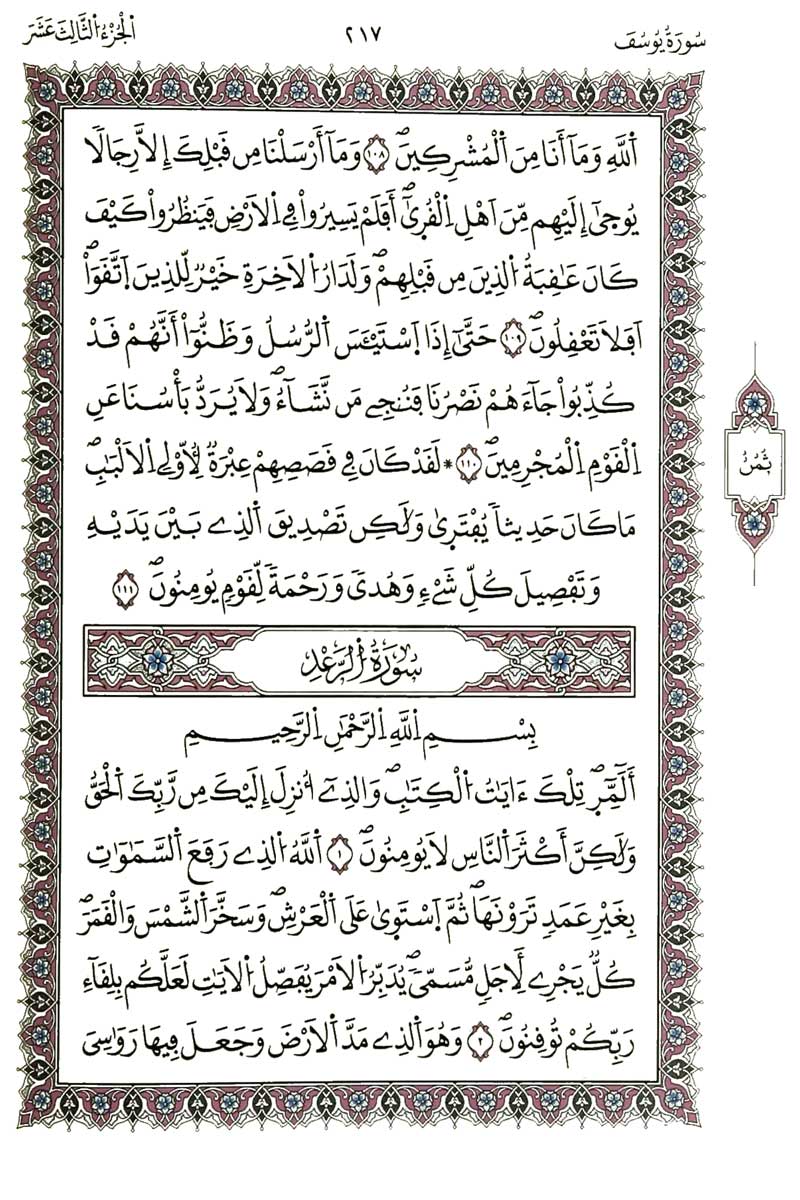 سُورَةُ يُوسُفَ
٢١٧
اَلْجُزْءُ الثَّالِثَ عَشَرَ
اَ۬للَّهِ وَمَآ أَنَا مِنَ اَ۬لْمُشْرِكِينَۖ ١٠٨ وَمَآ أَرْسَلْنَا مِن قَبْلِكَ إِلَّا رِجَالًا
يُوح۪يٰٓ إِلَيْهِم مِّنَ اَهْلِ اِ۬لْقُر۪يٰٓۖ أَفَلَمْ يَسِيرُواْ فِے اِ۬لَارْضِ فَيَنظُرُواْ كَيْفَ
كَانَ عَٰقِبَةُ اُ۬لذِينَ مِن قَبْلِهِمْۖ وَلَدَارُ اُ۬لَاخِرَةِ خَيْرٞ لِّلذِينَ اَ۪تَّقَوَاْۖ
اَفَلَا تَعْقِلُونَۖ ١٠٩ حَتَّىٰٓ إِذَا اَ۪سْتَيْـَٔسَ اَ۬لرُّسُلُ وَظَنُّوٓاْ أَنَّهُمْ قَدْ
كُذِّبُواْ جَآءَهُمْ نَصْرُنَا فَنُنجِے مَن نَّشَآءُۖ وَلَا يُرَدُّ بَأْسُنَا عَنِ
اِ۬لْقَوْمِ اِ۬لْمُجْرِمِينَۖ ١١٠ * لَقَدْ كَانَ فِے قَصَصِهِمْ عِبْرَةٞ لِّأُوْلِے اِ۬لَالْبَٰبِۖ
مَا كَانَ حَدِيثاٗ يُفْتَر۪يٰ وَلَٰكِن تَصْدِيقَ اَ۬لذِے بَيْنَ يَدَيْهِ
وَتَفْصِيلَ كُلِّ شَےْءٖ وَهُدىٗ وَرَحْمَةٗ لِّقَوْمٖ يُومِنُونَۖ ١١١
ثُمُنُ
سُورَةُ اُ۬لرَّعْدِ
بِسْمِ اِ۬للَّهِ اِ۬لرَّحْمَٰنِ اِ۬لرَّحِيمِ
أَلَٓمِّٓر۪ۖ تِلْكَ ءَايَٰتُ اُ۬لْكِتَٰبِۖ وَالذِےٓ أُنزِلَ إِلَيْكَ مِن رَّبِّكَ اَ۬لْحَقُّ
وَلَٰكِنَّ أَكْثَرَ اَ۬لنَّاسِ لَا يُومِنُونَۖ ١ اَ۬للَّهُ اُ۬لذِے رَفَعَ اَ۬لسَّمَٰوَٰتِ
بِغَيْرِ عَمَدٖ تَرَوْنَهَاۖ ثُمَّ اَ۪سْتَو۪يٰ عَلَى اَ۬لْعَرْشِۖ وَسَخَّرَ اَ۬لشَّمْسَ وَالْقَمَرَۖ
كُلّٞ يَجْرِے لِأَجَلٖ مُّسَمّىٗۖ يُدَبِّرُ اُ۬لَامْرَ يُفَصِّلُ اُ۬لَايَٰتِ لَعَلَّكُم بِلِقَآءِ
رَبِّكُمْ تُوقِنُونَۖ ٢ وَهُوَ اَ۬لذِے مَدَّ اَ۬لَارْضَ وَجَعَلَ فِيهَا رَوَٰسِىَ